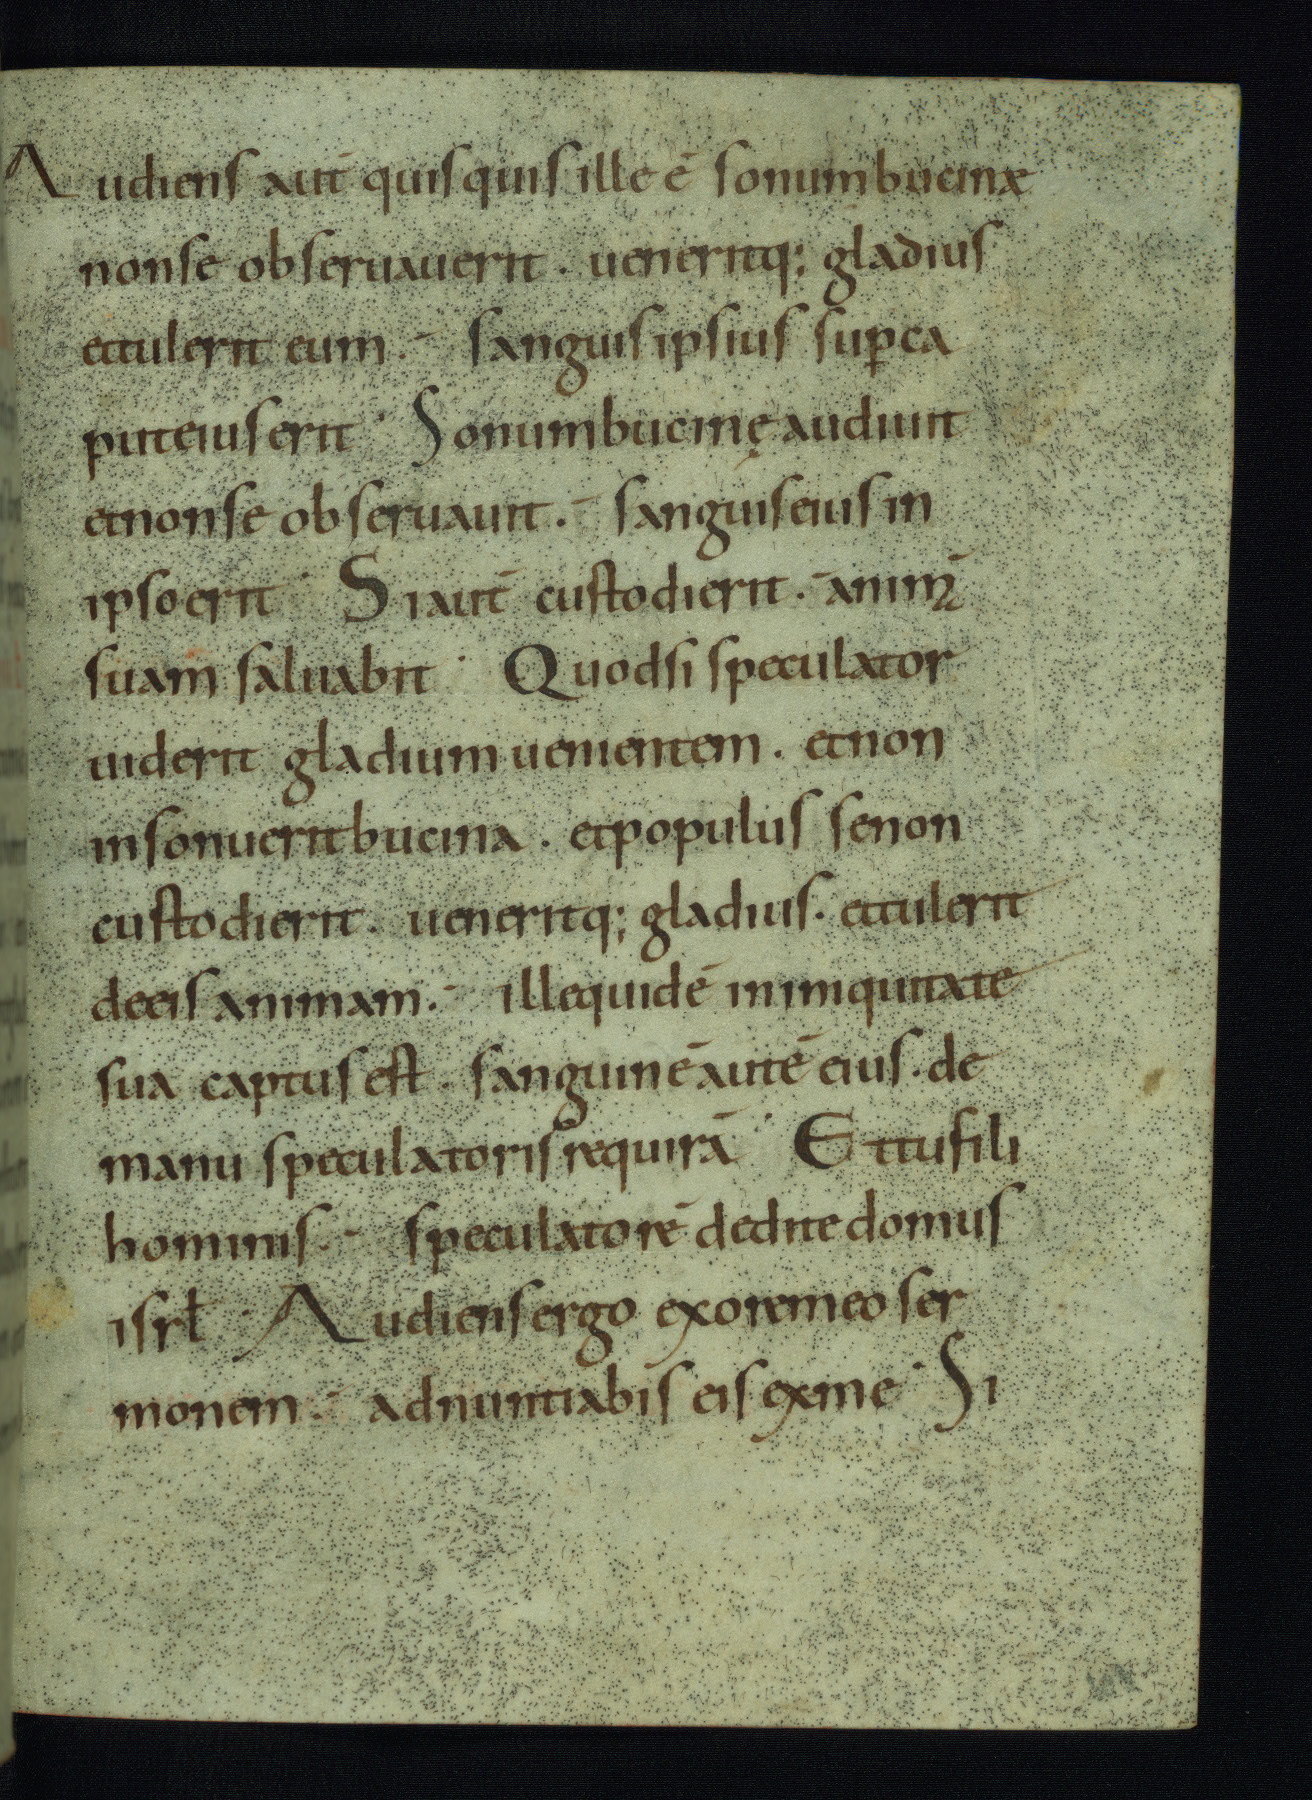 Audiens aut̄ quisquis ille ē sonum bucinæ
non se obseruauerit . ueneritq; gladius
et tulerit eum . sanguis ipsius sup̱ ca
put eius erit . Sonum bucinę audiuit
et non se obseruauit . sanguis eius in
ipso erit . Si aut̄ custodierit . animā
suam saluabit . Quod si speculator
uiderit gladium uenientem . et non
insonuerit bucina . et populus se non
custodierit . ueneritq; gladius . et tulerit
de eis animam . ille quidē in iniquitate
sua captus est . sanguinē autē eius . de
manu speculatoris requirā . Et tu fili
hominis . speculatorē dedi te domus
isrł . Audiens ergo ex ore meo ser
monem . adnuntiabis eis ex me . Si